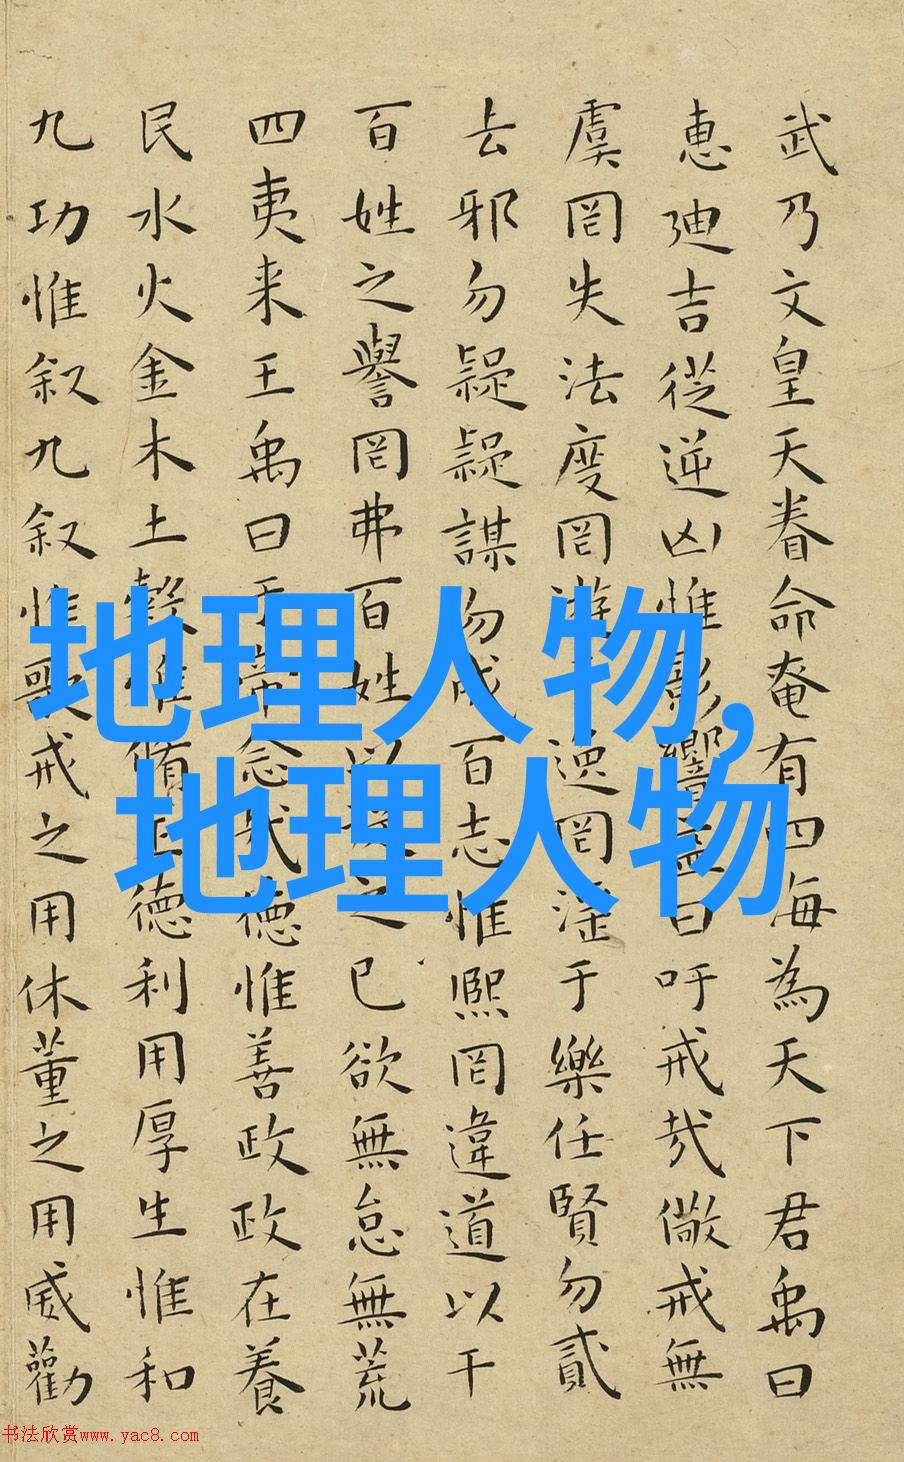 武乃文皇天眷命奄有四海為天下君禹曰
惠迪吉從逆凶惟影響益曰吁戒哉儆戒無
虞罔失法度罔遊于逸罔淫于樂任賢勿貳
去邪勿疑疑謀勿成百志惟熙罔違道以干
百姓之譽罔弗百姓以從之己欲無怠無荒
四夷来王禹曰于帝念哉德惟善政政在養
民水火金木土穀惟脩正德利用厚生惟和
九功惟叙九叙惟歌戒之用休董之用威勸
地理人物,
地理人物
书法欣赏www.yac8.com